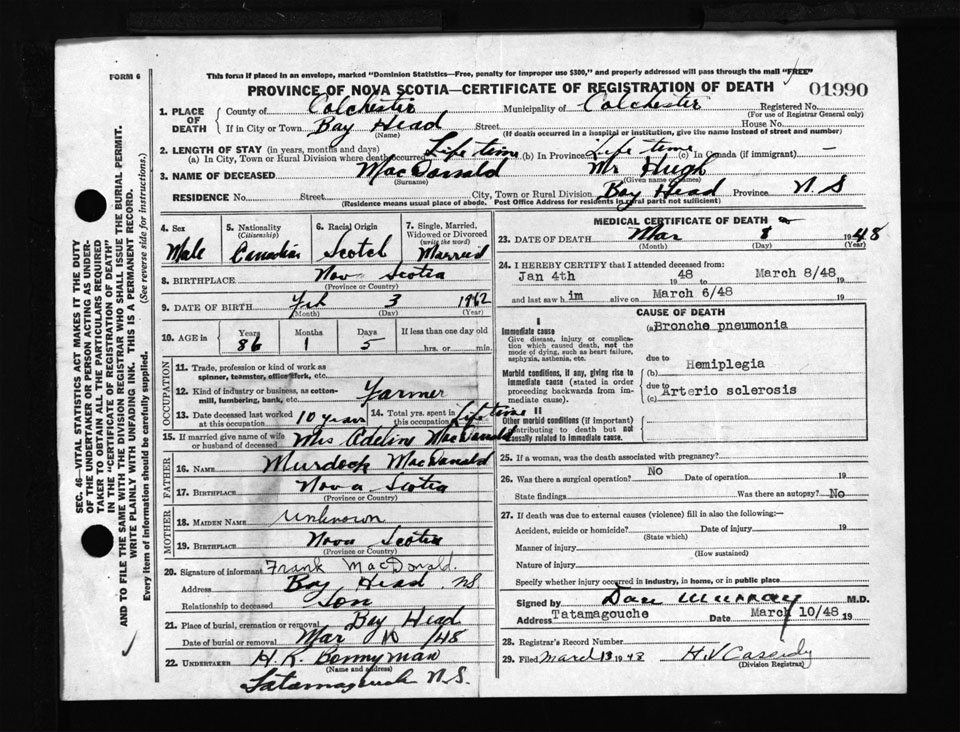 FORM 6
This form if placed in an envelope, marked "Dominion Statistics—Free, penalty for improper use $300," and properly addressed will pass through the mail "FREE"
PROVINCE OF NOVA SCOTIA—CERTIFICATE OF REGISTRATION OF DEATH
01990
1. PLACE OF DEATH
County of Colchester Municipality of Colchester Registered No.
(For use of Registrar General only)
If in City or Town Bay Head Street House No.
(Name) (If death occurred in a hospital or institution, give the name instead of street and number)
2. LENGTH OF STAY (in years, months and days)
(a) In City, Town or Rural Division where death occurred Life time (b) In Province Life time (c) In Canada (if immigrant) —
3. NAME OF DECEASED MacDonald Mr Hugh
(Surname) (Given name or names)
RESIDENCE No. Street City, Town or Rural Division Bay Head Province N.S
(Residence means usual place of abode. Post Office Address for residents in rural parts not sufficient)
4. Sex Male
5. Nationality (Citizenship) Canadian
6. Racial Origin Scotch
7. Single, Married, Widowed or Divorced (write the word) Married
8. BIRTHPLACE Nova Scotia
(Province or Country)
9. DATE OF BIRTH Feb 3 1962
(Month) (Day) (Year)
10. AGE in Years Months Days If less than one day old
86 1 5 hrs. or min.
OCCUPATION
11. Trade, profession or kind of work as spinner, teamster, office clerk, etc.
12. Kind of industry or business, as cotton-mill, lumbering, bank, etc. Farmer
13. Date deceased last worked at this occupation 10 years
14. Total yrs. spent in this occupation Life time
15. If married give name of wife or husband of deceased Mrs Adeline MacDonald
FATHER
16. NAME Murdock MacDonald
17. BIRTHPLACE Nova Scotia
(Province or Country)
MOTHER
18. MAIDEN NAME unknown
19. BIRTHPLACE Nova Scotia
(Province or Country)
20. Signature of informant Frank MacDonald.
Address Bay Head NS.
Relationship to deceased Son
21. Place of burial, cremation or removal Bay Head
Date of burial or removal Mar 10 /48
22. UNDERTAKER H. K. Bonnyman
(Name and address)
Tatamagouche N.S.
MEDICAL CERTIFICATE OF DEATH
23. DATE OF DEATH Mar 8 1948
(Month) (Day) (Year)
24. I HEREBY CERTIFY that I attended deceased from:
Jan 4th 48 March 8/48
19 to 19
and last saw him alive on March 6/48 19
CAUSE OF DEATH
I
Immediate cause
Give disease, injury or complication which caused death, not the mode of dying, such as heart failure, asphyxia, asthenia, etc.
(a) Bronche pneumonia
due to
Morbid conditions, if any, giving rise to immediate cause (stated in order proceeding backwards from immediate cause).
(b) Hemiplegia
due to
(c) Arterio sclerosis
II
Other morbid conditions (if important) contributing to death but not causally related to immediate cause.
25. If a woman, was the death associated with pregnancy?
26. Was there a surgical operation? No Date of operation 19
State findings Was there an autopsy? No
27. If death was due to external causes (violence) fill in also the following:
Accident, suicide or homicide? Date of injury 19
(State which)
Manner of injury
(How sustained)
Nature of injury
Specify whether injury occurred in industry, in home, or in public place
Signed by Dan Murray M.D.
Address Tatamagouche Date March 10/48 19
28. Registrar's Record Number
29. Filed March 13 1948 H V Cassidy
(Division Registrar)
SEC. 46—VITAL STATISTICS ACT MAKES IT THE DUTY
OF THE UNDERTAKER OR PERSON ACTING AS UNDER-
TAKER TO OBTAIN ALL THE PARTICULARS REQUIRED
IN THE "CERTIFICATE OF REGISTRATION OF DEATH"
AND TO FILE THE SAME WITH THE DIVISION REGISTRAR WHO SHALL ISSUE THE BURIAL PERMIT.
WRITE PLAINLY WITH UNFADING INK. THIS IS A PERMANENT RECORD.
Every item of information should be carefully supplied. (See reverse side for instructions.)